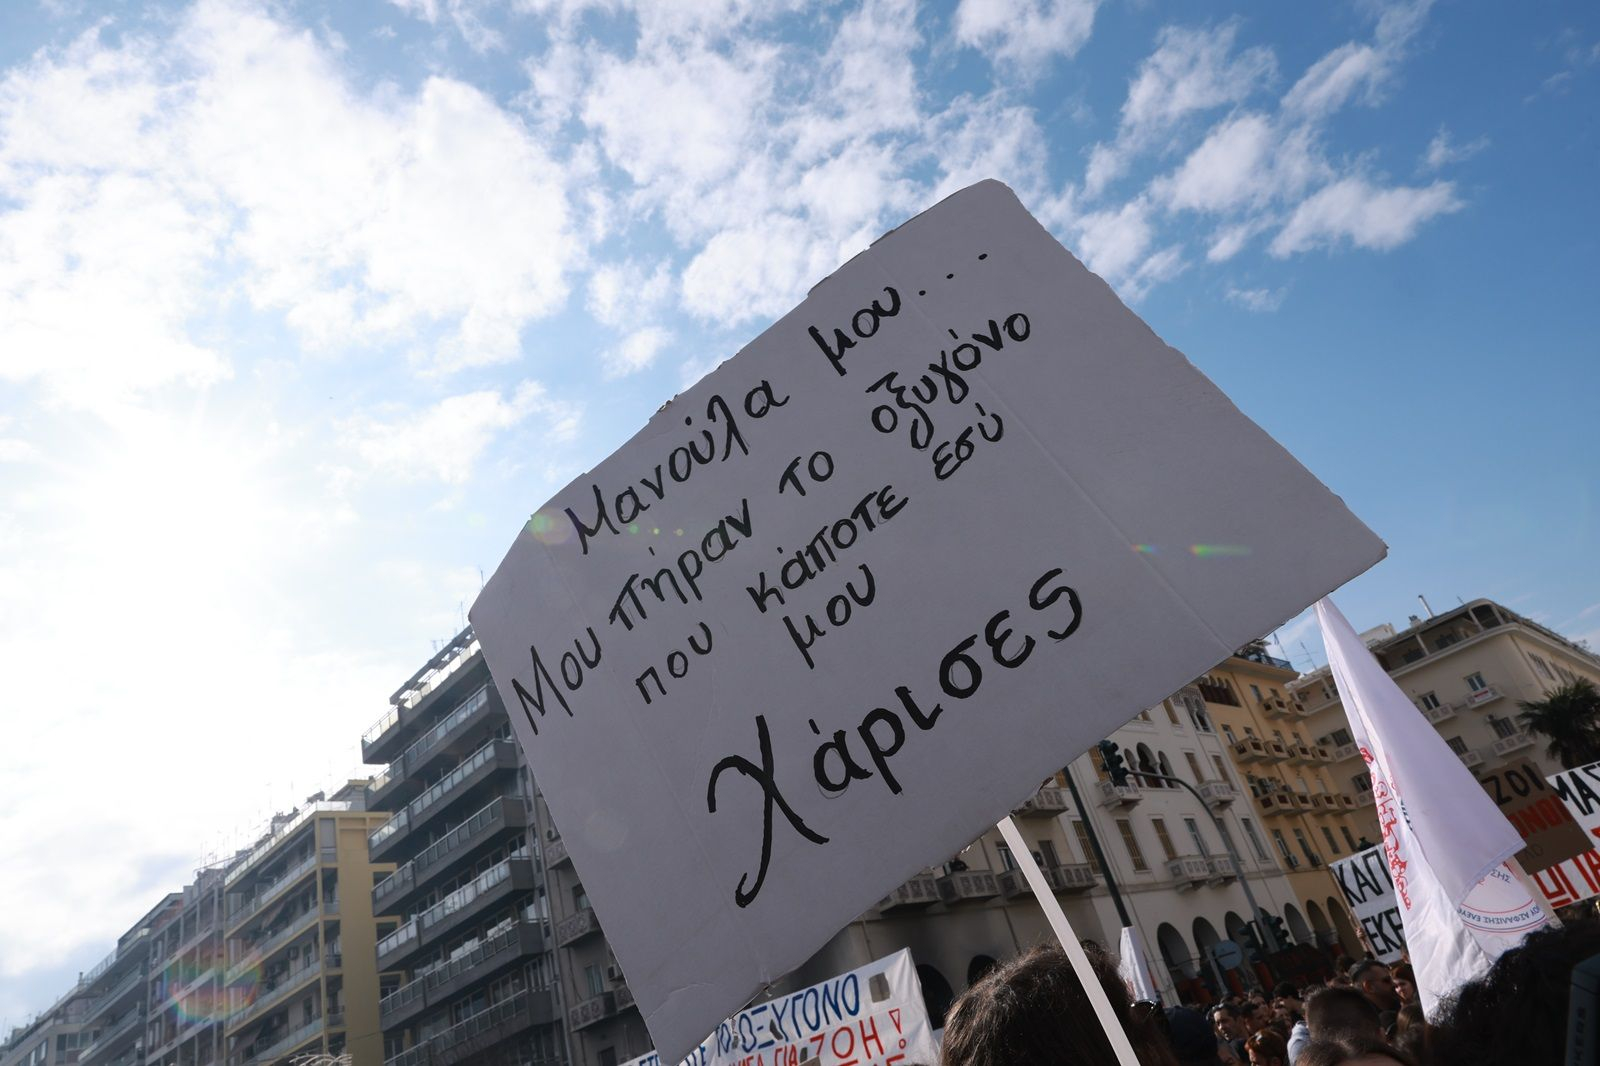 Μανούλα μου...
Μου πήραν το οξυγόνο
που κάποτε εσύ
μου
Χάρισες
ΟΞΥΓΟΝΟ
ΓΙΑ ΖΩΗ!
ΖΟΙ
ΚΑΠ
ΕΚΕ
ΜΑΣ